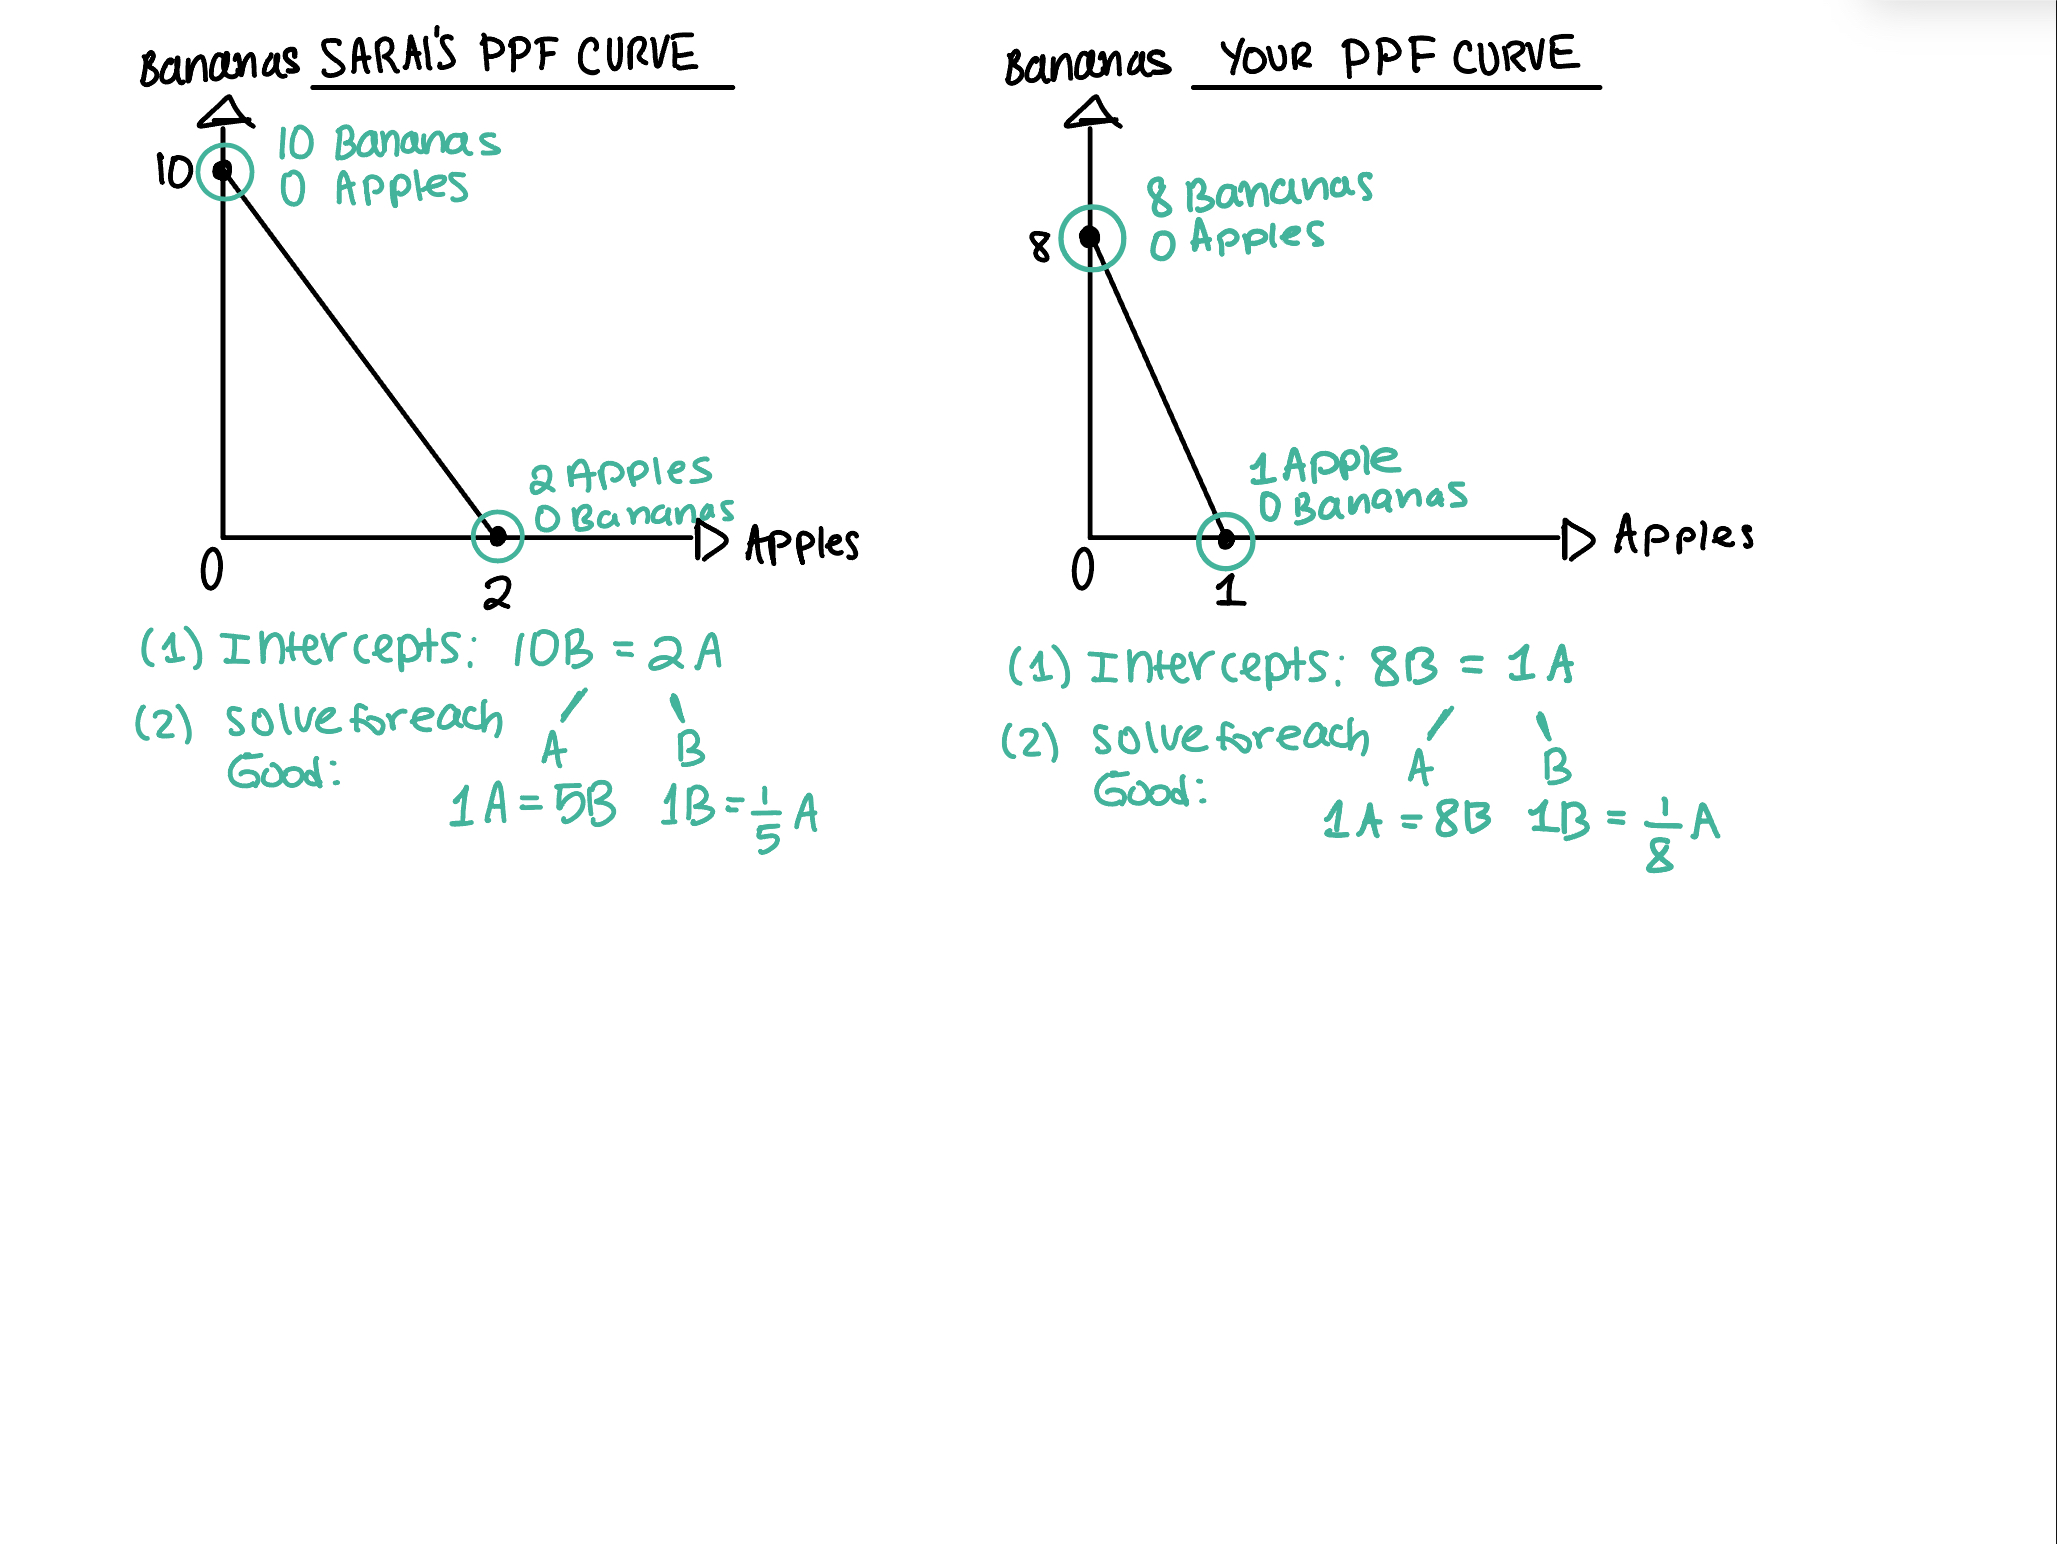 Bananas SARAI'S PPF CURVE
10 Bananas
10
0 Apples
2 Apples
0 Bananas
Apples
0
2
(1) Intercepts: 10B = 2A
(2) solve for each
A B
Good:
1A = 5B 1B = 1/5 A
Bananas YOUR PPF CURVE
8 Bananas
8
0 Apples
1 Apple
0 Bananas
Apples
0
1
(1) Intercepts: 8B = 1A
(2) solve for each
A B
Good:
1A = 8B 1B = 1/8 A